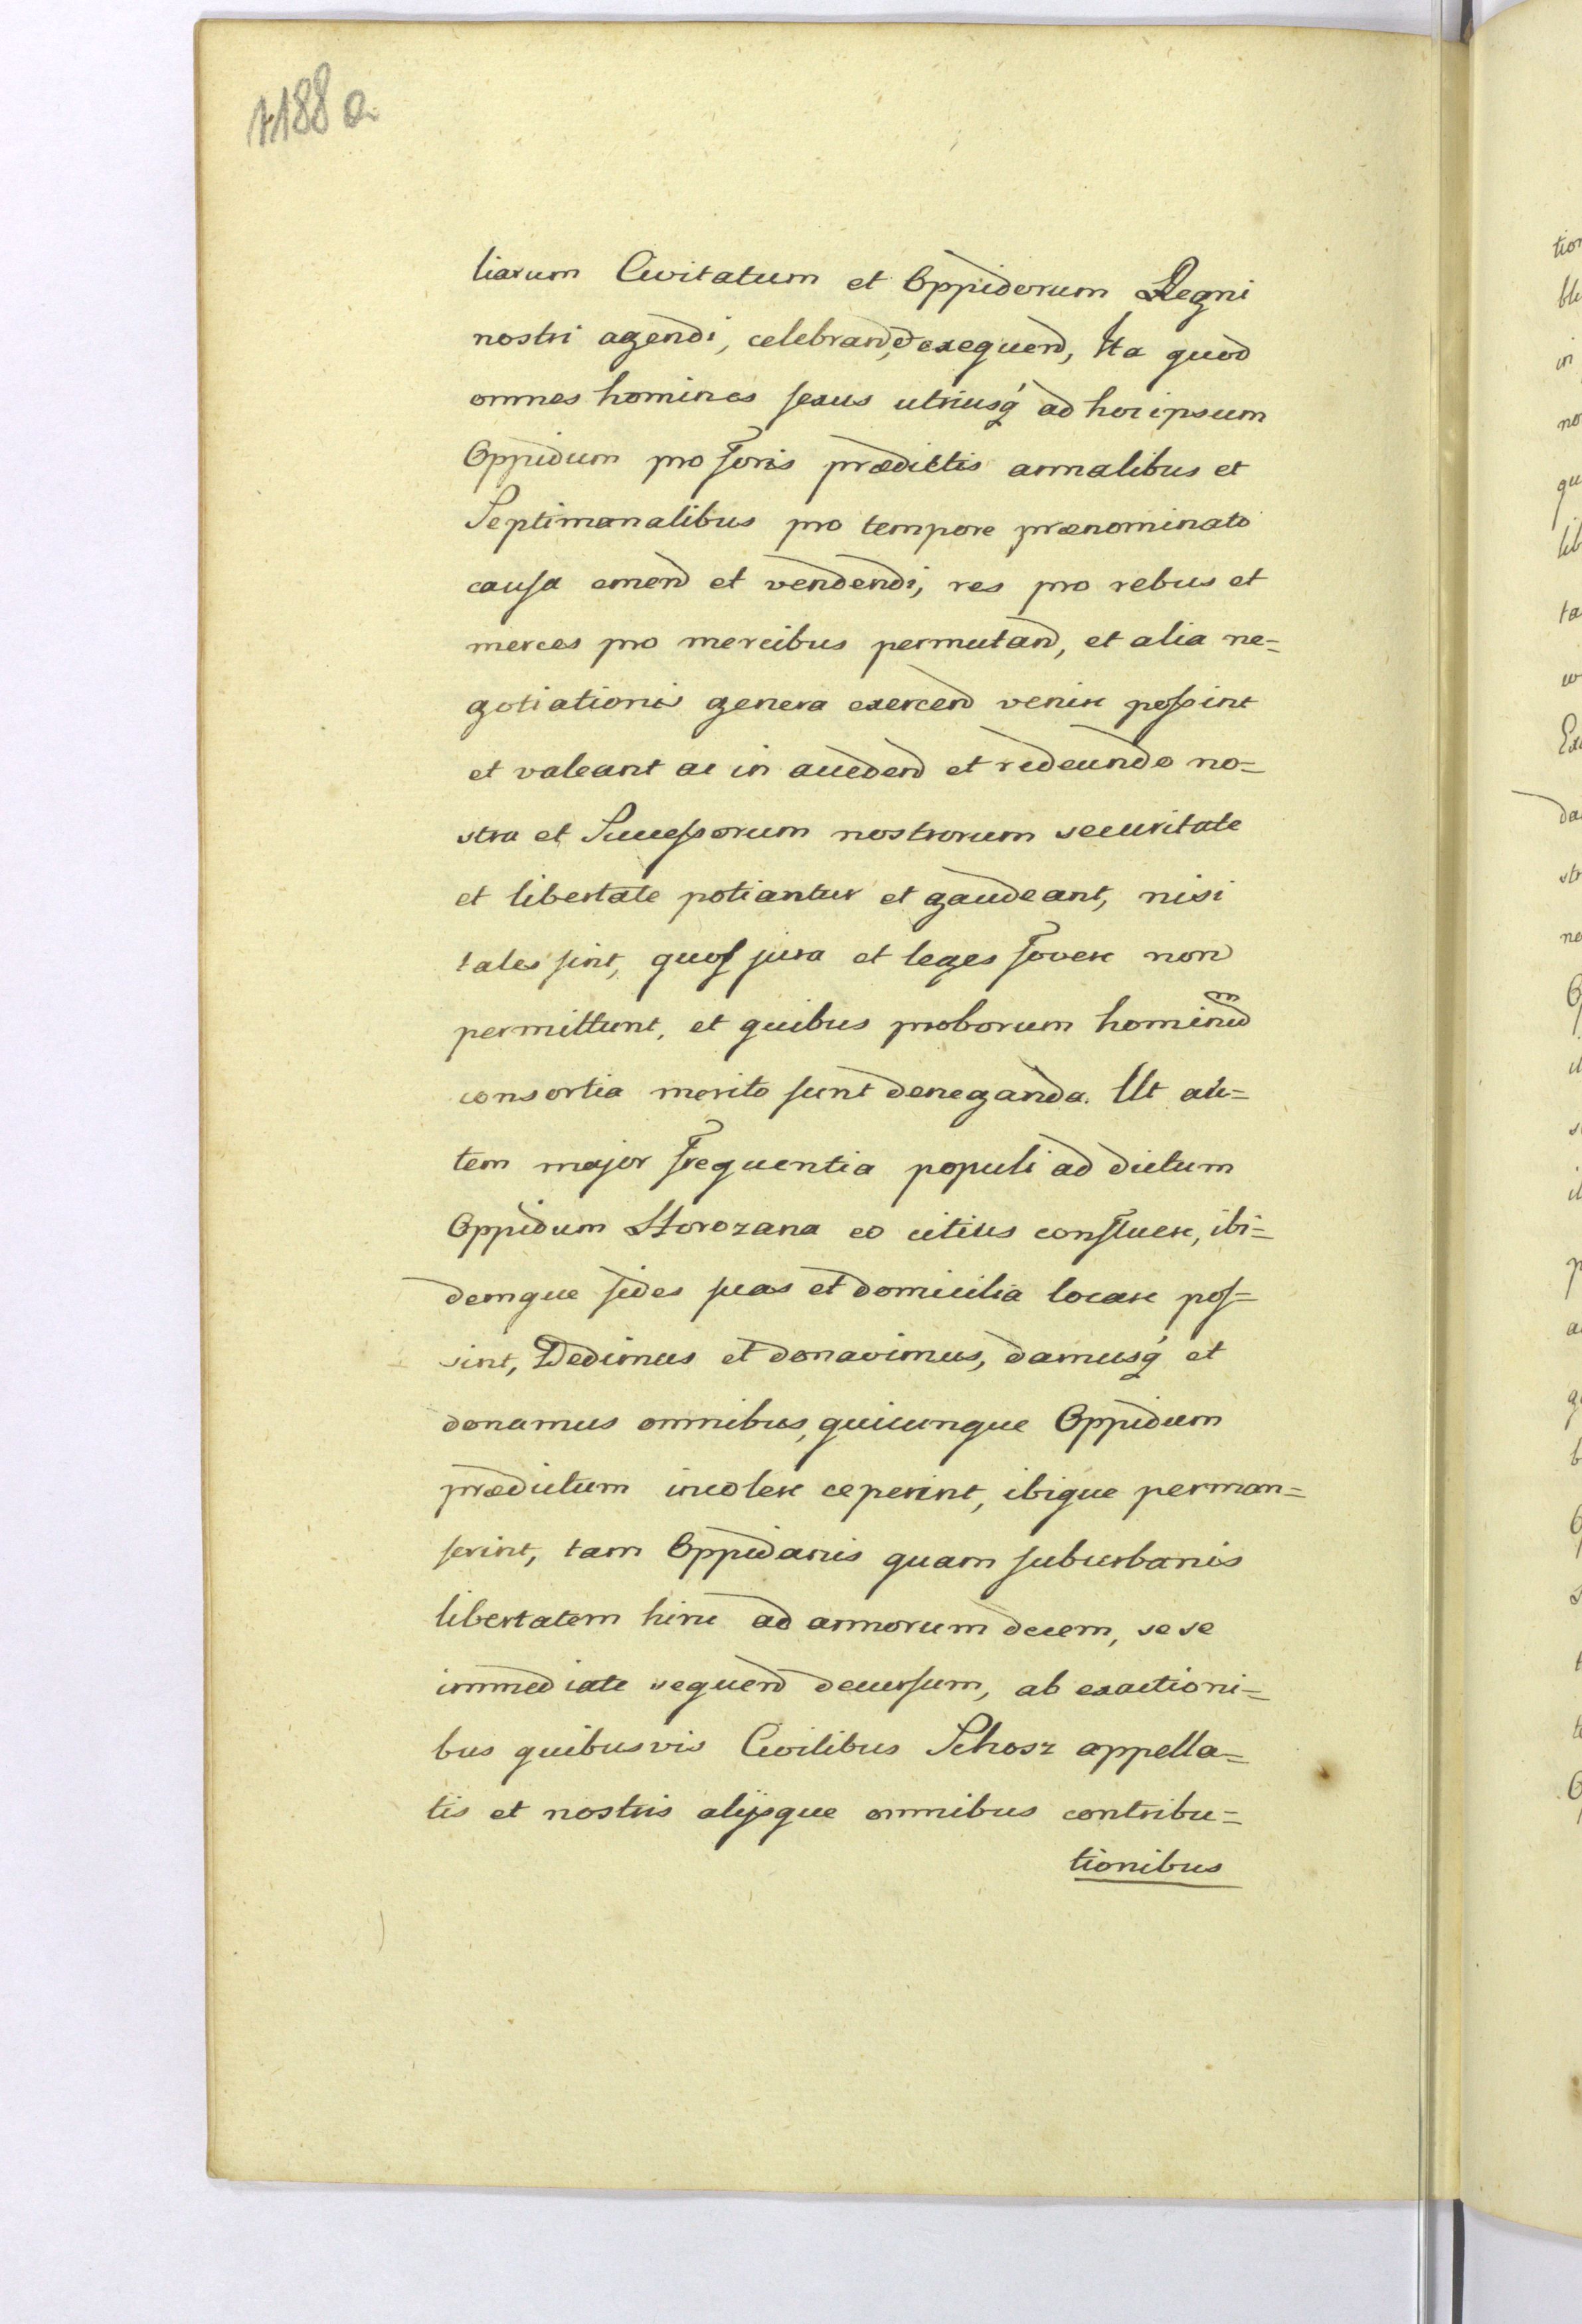 1188 a
liarum Civitatum et Oppidorum Regni
nostri agendi, celebrand, et exequend, Ita quod
omnes homines sexus utriusq́ ad hoc ipsum
Oppidum pro foris prædictis annalibus et
Septimanalibus pro tempore prænominato
causa emend et vendendi, res pro rebus et
merces pro mercibus permutand, et alia ne=
gotiationis genera exercend venire possint
et valeant ac in accedend et redeundo no=
stra et Successorum nostrorum securitate
et libertate potiantur et gaudeant, nisi
tales sint, quos jura et leges fovere non
permittunt, et quibus proborum hominum
consortia merito sunt deneganda. Ut au=
tem major frequentia populi ad dictum
Oppidum Horozana eo citius confluere, ibi=
demque sides suas et domicilia locare pos=
sint, Dedimus et donavimus, damusq́ et
donamus omnibus, quicunque Oppidum
prædictum incolere ceperint, ibique perman=
serint, tam Oppidanis quam suburbanis
libertatem hinc ad annorum decem, sese
immediate sequend decursum, ab exactioni=
bus quibusvis Civilibus Schosz appella=
tis et nostris alijsque omnibus contribu=
tionibus